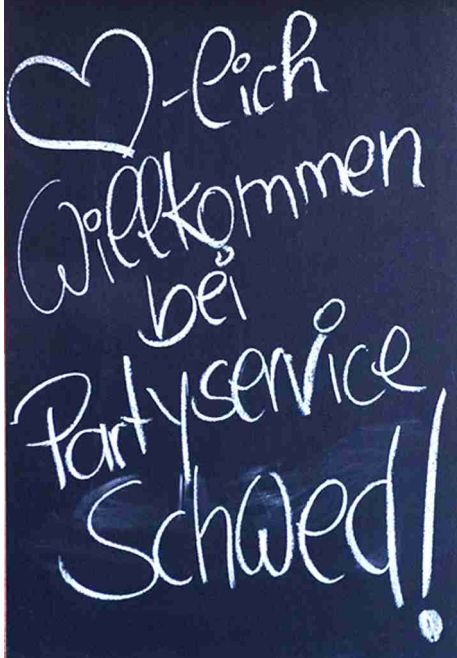 ♡-lich
Willkommen
bei
Partyservice
Schwed!